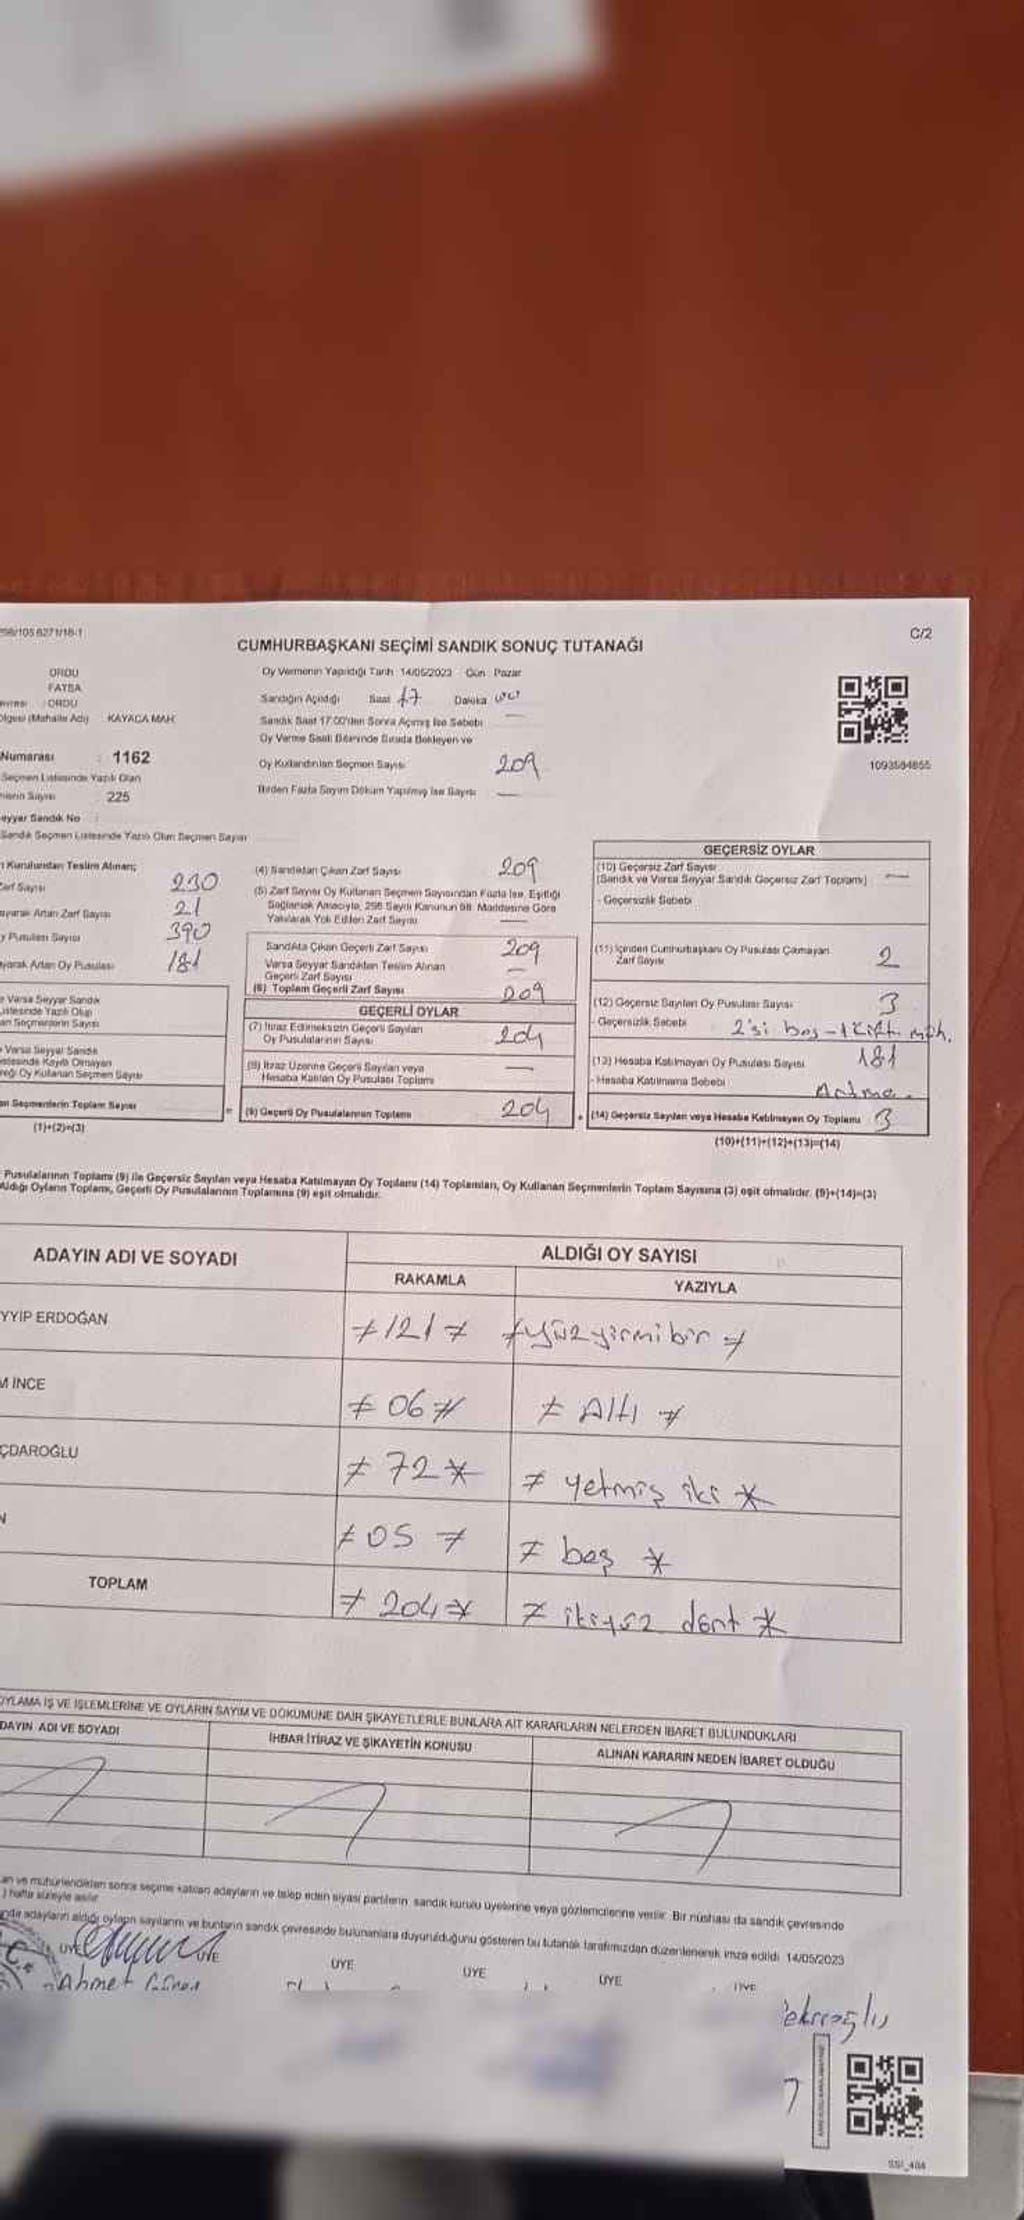 298/105 6271/18-1
C/2
CUMHURBAŞKANI SEÇİMİ SANDIK SONUÇ TUTANAĞI
ORDU
FATSA
ORDU
(Mahalle Adı) KAYACA MAH.
Numarası : 1162
Seçmen Listesinde Yazılı Olan
Sayısı 225
Seyyar Sandık No :
Sandık Seçmen Listesinde Yazılı Olan Seçmen Sayısı
Oy Vermenin Yapıldığı Tarih 14/05/2023 Gün Pazar
Sandığın Açıldığı Saat 17 Dakika
Sandık Saat 17:00'den Sonra Açılmış İse Sebebi —
Oy Verme Saati Bitiminde Sırada Bekleyen ve
Oy Kullandırılan Seçmen Sayısı 209
Birden Fazla Sayım Döküm Yapılmış İse Sayısı —
1093584855
Kurulundan Teslim Alınan;
Zarf Sayısı 230
Artan Zarf Sayısı 21
Pusulası Sayısı 390
Artan Oy Pusulası 181
Varsa Seyyar Sandık
Listesinde Yazılı Olup
Seçmenlerin Sayısı
Varsa Seyyar Sandık
Listesinde Kayıtlı Olmayan
Oy Kullanan Seçmen Sayısı
Seçmenlerin Toplam Sayısı
(1)+(2)=(3)
(4) Sandıktan Çıkan Zarf Sayısı 209
(5) Zarf Sayısı Oy Kullanan Seçmen Sayısından Fazla İse, Eşitliği
Sağlamak Amacıyla, 298 Sayılı Kanunun 98. Maddesine Göre
Yakılarak Yok Edilen Zarf Sayısı —
Sandıkta Çıkan Geçerli Zarf Sayısı 209
Varsa Seyyar Sandıktan Teslim Alınan
Geçerli Zarf Sayısı —
(6) Toplam Geçerli Zarf Sayısı 209
GEÇERLİ OYLAR
(7) İtiraz Edilmeksizin Geçerli Sayılan
Oy Pusulalarının Sayısı 204
(8) İtiraz Üzerine Geçerli Sayılan veya
Hesaba Katılan Oy Pusulası Toplamı —
= (9) Geçerli Oy Pusulalarının Toplamı 204
GEÇERSİZ OYLAR
(10) Geçersiz Zarf Sayısı
(Sandık ve Varsa Seyyar Sandık Geçersiz Zarf Toplamı) —
- Geçersizlik Sebebi
(11) İçinden Cumhurbaşkanı Oy Pusulası Çıkmayan
Zarf Sayısı 2
(12) Geçersiz Sayılan Oy Pusulası Sayısı 3
- Geçersizlik Sebebi 2'si boş - 1 Çift müh.
(13) Hesaba Katılmayan Oy Pusulası Sayısı 181
- Hesaba Katılmama Sebebi Artma.
+ (14) Geçersiz Sayılan veya Hesaba Katılmayan Oy Toplamı 3
(10)+(11)+(12)+(13)=(14)
Pusulalarının Toplamı (9) ile Geçersiz Sayılan veya Hesaba Katılmayan Oy Toplamı (14) Toplamları, Oy Kullanan Seçmenlerin Toplam Sayısına (3) eşit olmalıdır. (9)+(14)=(3)
Aldığı Oyların Toplamı, Geçerli Oy Pusulalarının Toplamına (9) eşit olmalıdır.
ADAYIN ADI VE SOYADI ALDIĞI OY SAYISI
RAKAMLA YAZIYLA
YYİP ERDOĞAN ≠ 121 ≠ ≠ yüz yirmi bir ≠
M İNCE ≠ 06 ≠ ≠ Altı ≠
ÇDAROĞLU ≠ 72 * ≠ yetmiş iki *
N ≠ 05 ≠ ≠ beş *
TOPLAM ≠ 204 * ≠ ikiyüz dört *
OYLAMA İŞ VE İŞLEMLERİNE VE OYLARIN SAYIM VE DÖKÜMÜNE DAİR ŞİKAYETLERLE BUNLARA AİT KARARLARIN NELERDEN İBARET BULUNDUKLARI
ADI VE SOYADI İHBAR İTİRAZ VE ŞİKAYETİN KONUSU ALINAN KARARIN NEDEN İBARET OLDUĞU
ve mühürlendikten sonra seçime katılan adayların ve talep eden siyasi partilerin sandık kurulu üyelerine veya gözlemcilerine verilir. Bir nüshası da sandık çevresinde
hafta süreyle asılır.
adayların aldığı oyların sayılarını ve bunların sandık çevresinde bulunanlara duyurulduğunu gösteren bu tutanak tarafımızdan düzenlenerek imza edildi. 14/05/2023
ÜYE ÜYE ÜYE ÜYE ÜYE ÜYE
Ahmet
SSI_484